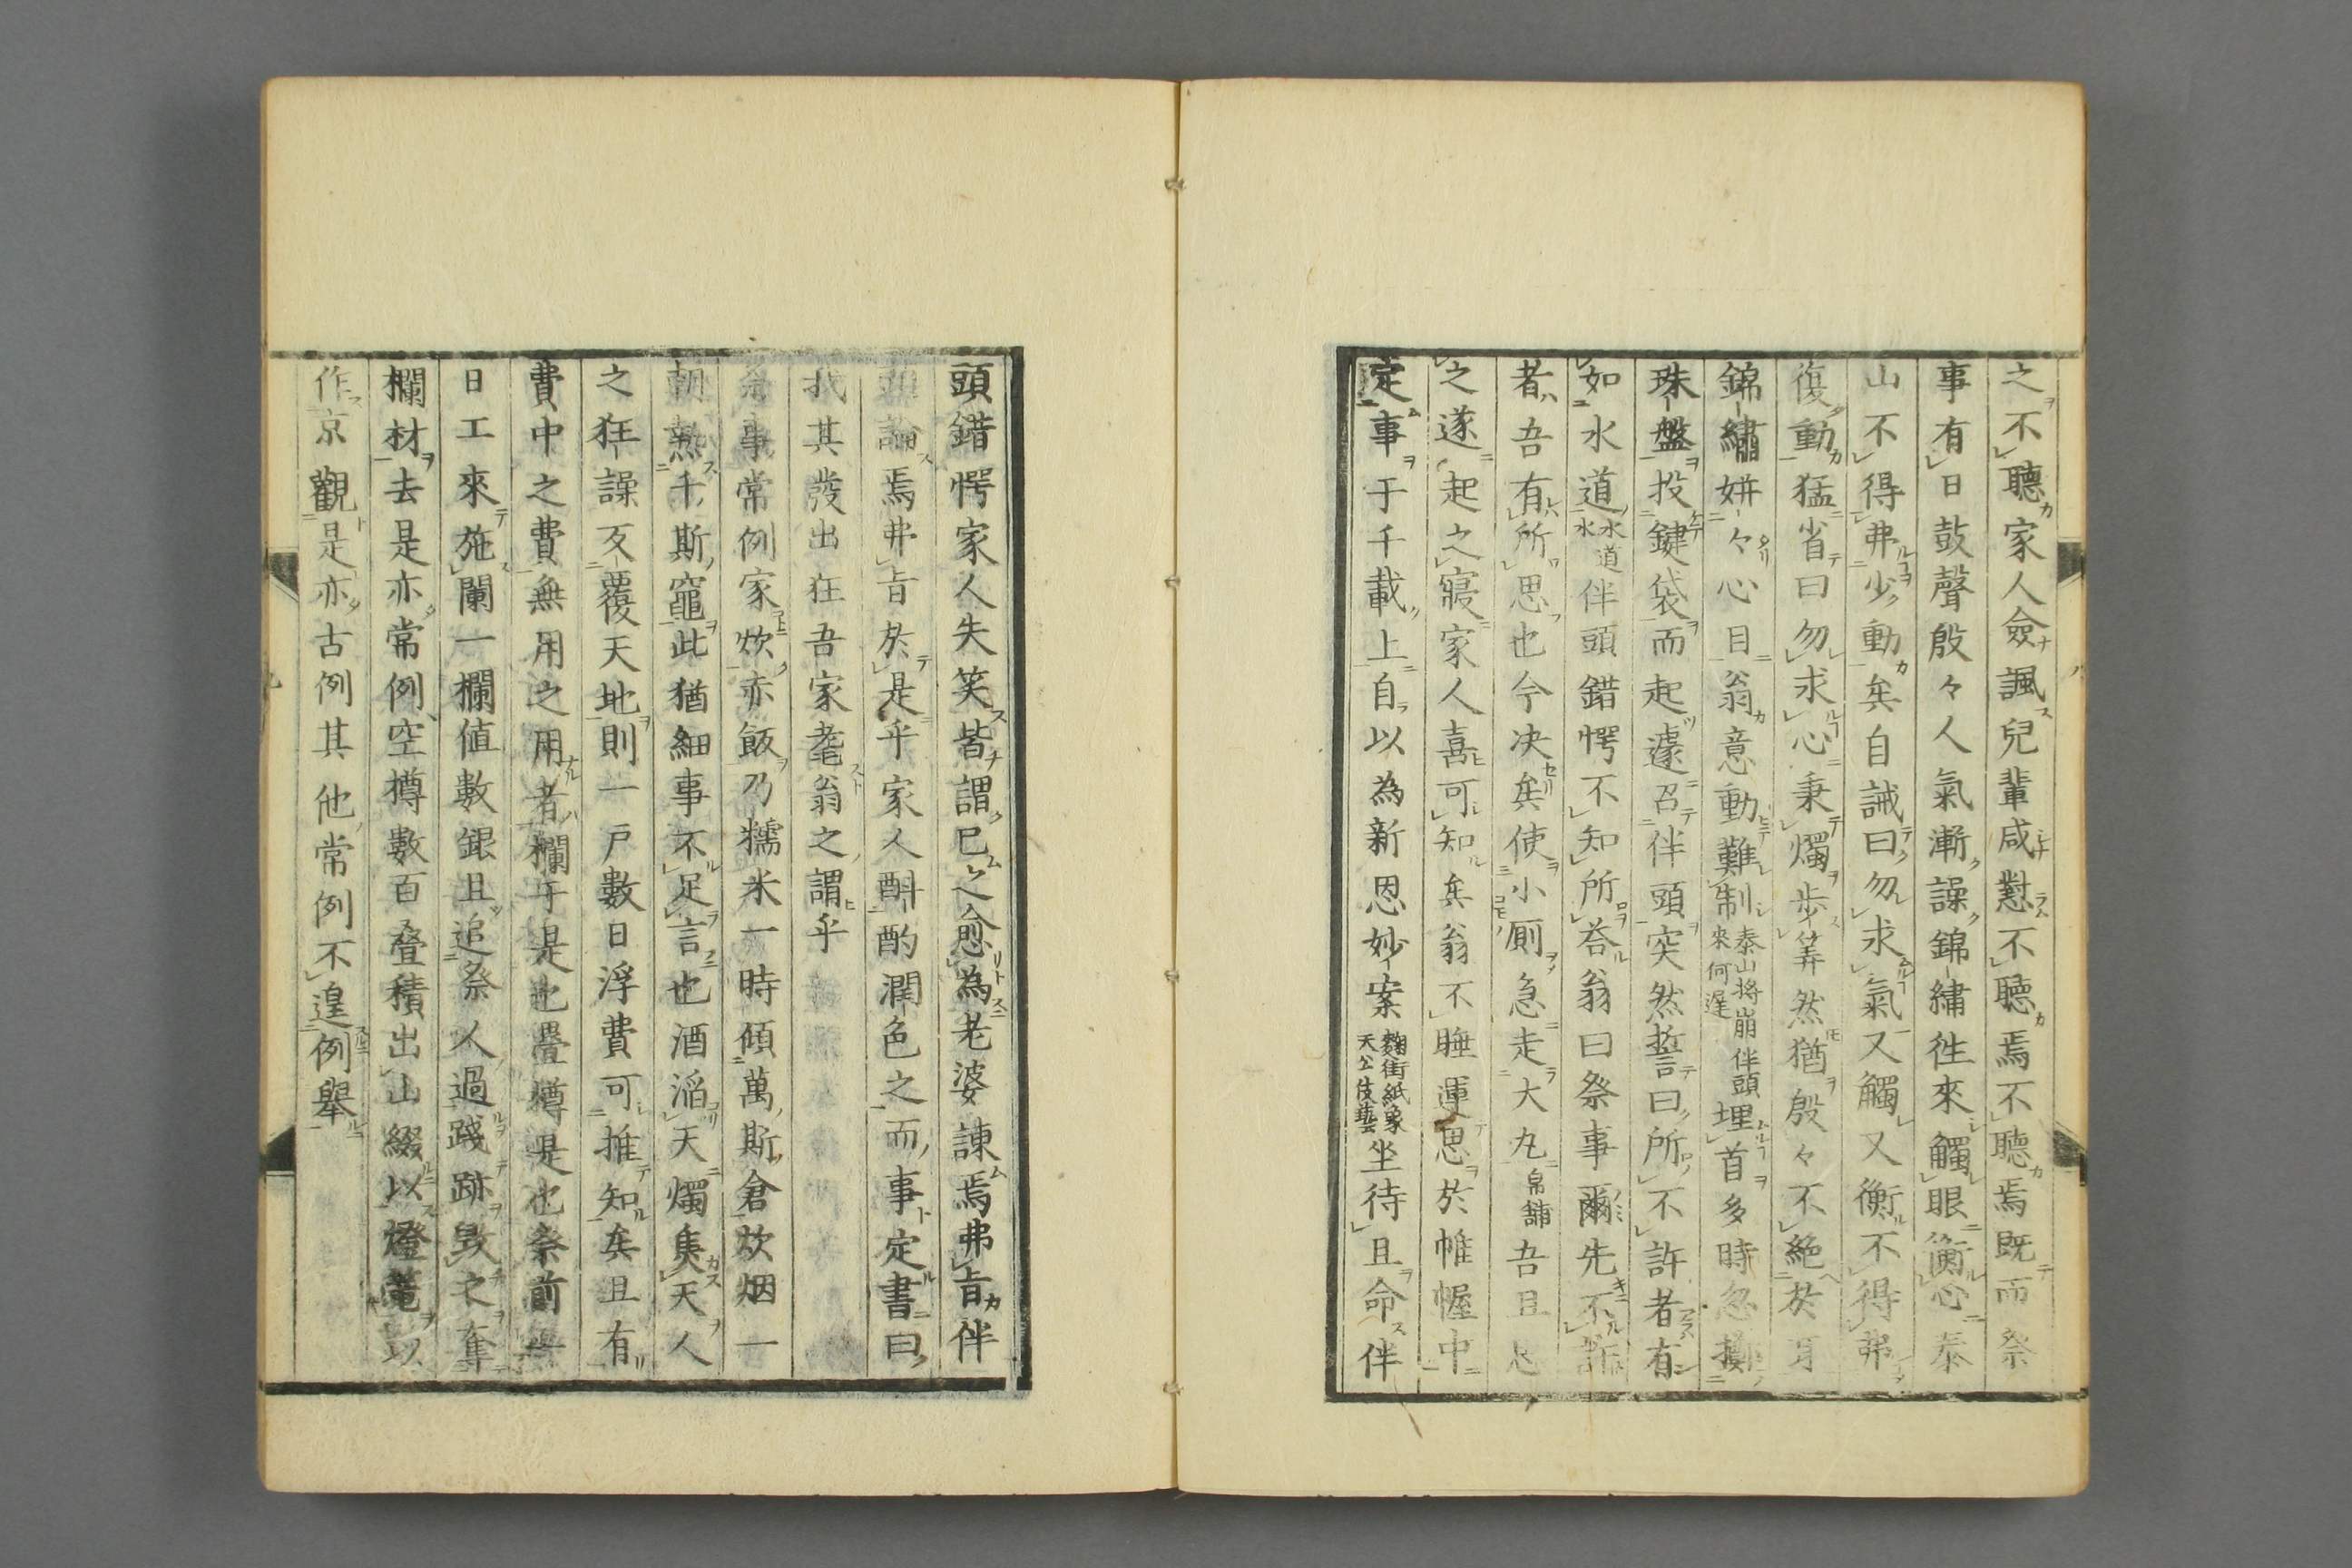 之不聽家人僉諷兒輩咸懟不聽焉不聽焉既而祭
事有日鼓聲殷々人氣漸譟錦繡徃來觸眼衝心泰
山不得弗少動矣自誡曰勿求氣又觸又衝不得弗
復動猛省曰勿求心秉燭歩筭然猶殷々不絶於耳
錦繡姘々心目翁意動難制泰山将崩伴頭埋首多時忽擲
來何遅
珠盤投鍵袋而起遽召伴頭突然誓曰所不許者有
如水道水道水伴頭錯愕不知所荅翁曰祭事爾先不訴
者吾有所思也今決矣使小厠急走大丸帛舗吾且思
之遂起之寝家人喜可知矣翁不睡運思於帷幄中
定事于千載上自以為新思妙案麹街紙象天公伎藝坐待且命伴
頭錯愕家人失笑皆謂已之愈為老婆諌焉弗㫖伴
論焉弗㫖於是乎家人斟酌潤色之而事定書曰
其發出狂吾家耄翁之謂乎
祭事常例家炊亦飯乃糯米一時傾萬斯倉炊烟一
朝熱千斯竈此猶細事不足言也酒滔天燭㷔天人
之狂譟反覆天地則一戸數日浮費可推知矣且有
費中之費無用之用者欄干是也疊樽是也祭前一
日工來施闌一欄値數銀且追祭人過踐跡毀之奪
欄材去是亦常例空樽數百疊積出山綴以燈菴以
作京觀是亦古例其他常例不遑例舉